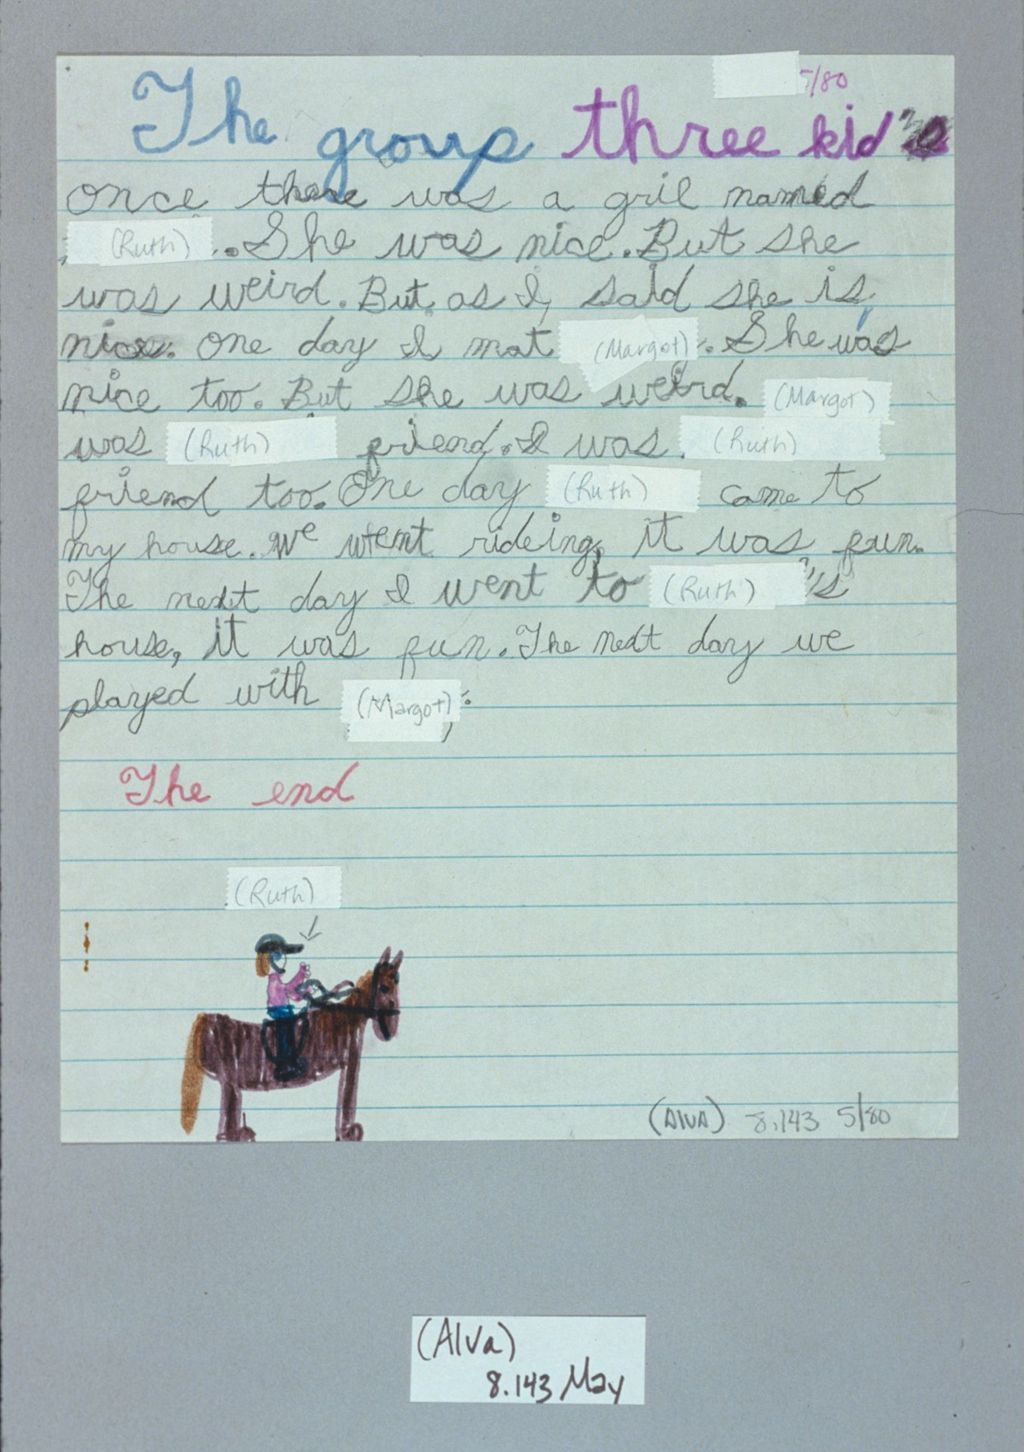 5/80
The group three kid's
once there was a gril named
(Ruth). She was nice. But she
was weird. But as I, said she is
nice. One day I mat (Margot). She was
nice too. But she was weird. (Margot)
was (Ruth) friend. I was (Ruth)
friend too. One day (Ruth) came to
my house. We went rideing. it was fun.
The next day I went to (Ruth)'s
house, it was fun. The next day we
played with (Margot).
The end
(Ruth)
(Alva) 8.143 5/80
(Alva)
8.143 May